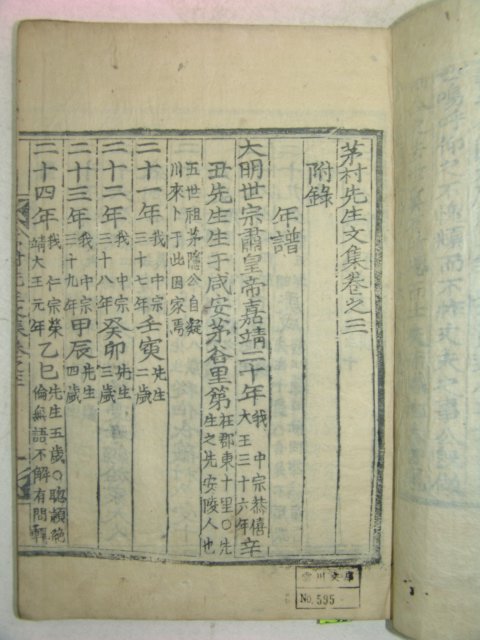 茅村先生文集卷之三
附錄
年譜
大明世宗肅皇帝嘉靖二十年我 中宗恭僖大王三十六年辛
丑先生生于咸安茅谷里第在郡東十里○先生之先安陵人也
五世祖茅隱公自宜川來卜于此因家焉
二十一年我 中宗三十七年壬寅先生二歲
二十二年我 中宗三十八年癸卯先生三歲
二十三年我 中宗三十九年甲辰先生四歲
二十四年我 仁宗榮靖大王元年乙巳先生五歲○聰穎絶倫無語不解有問輒
No. 595